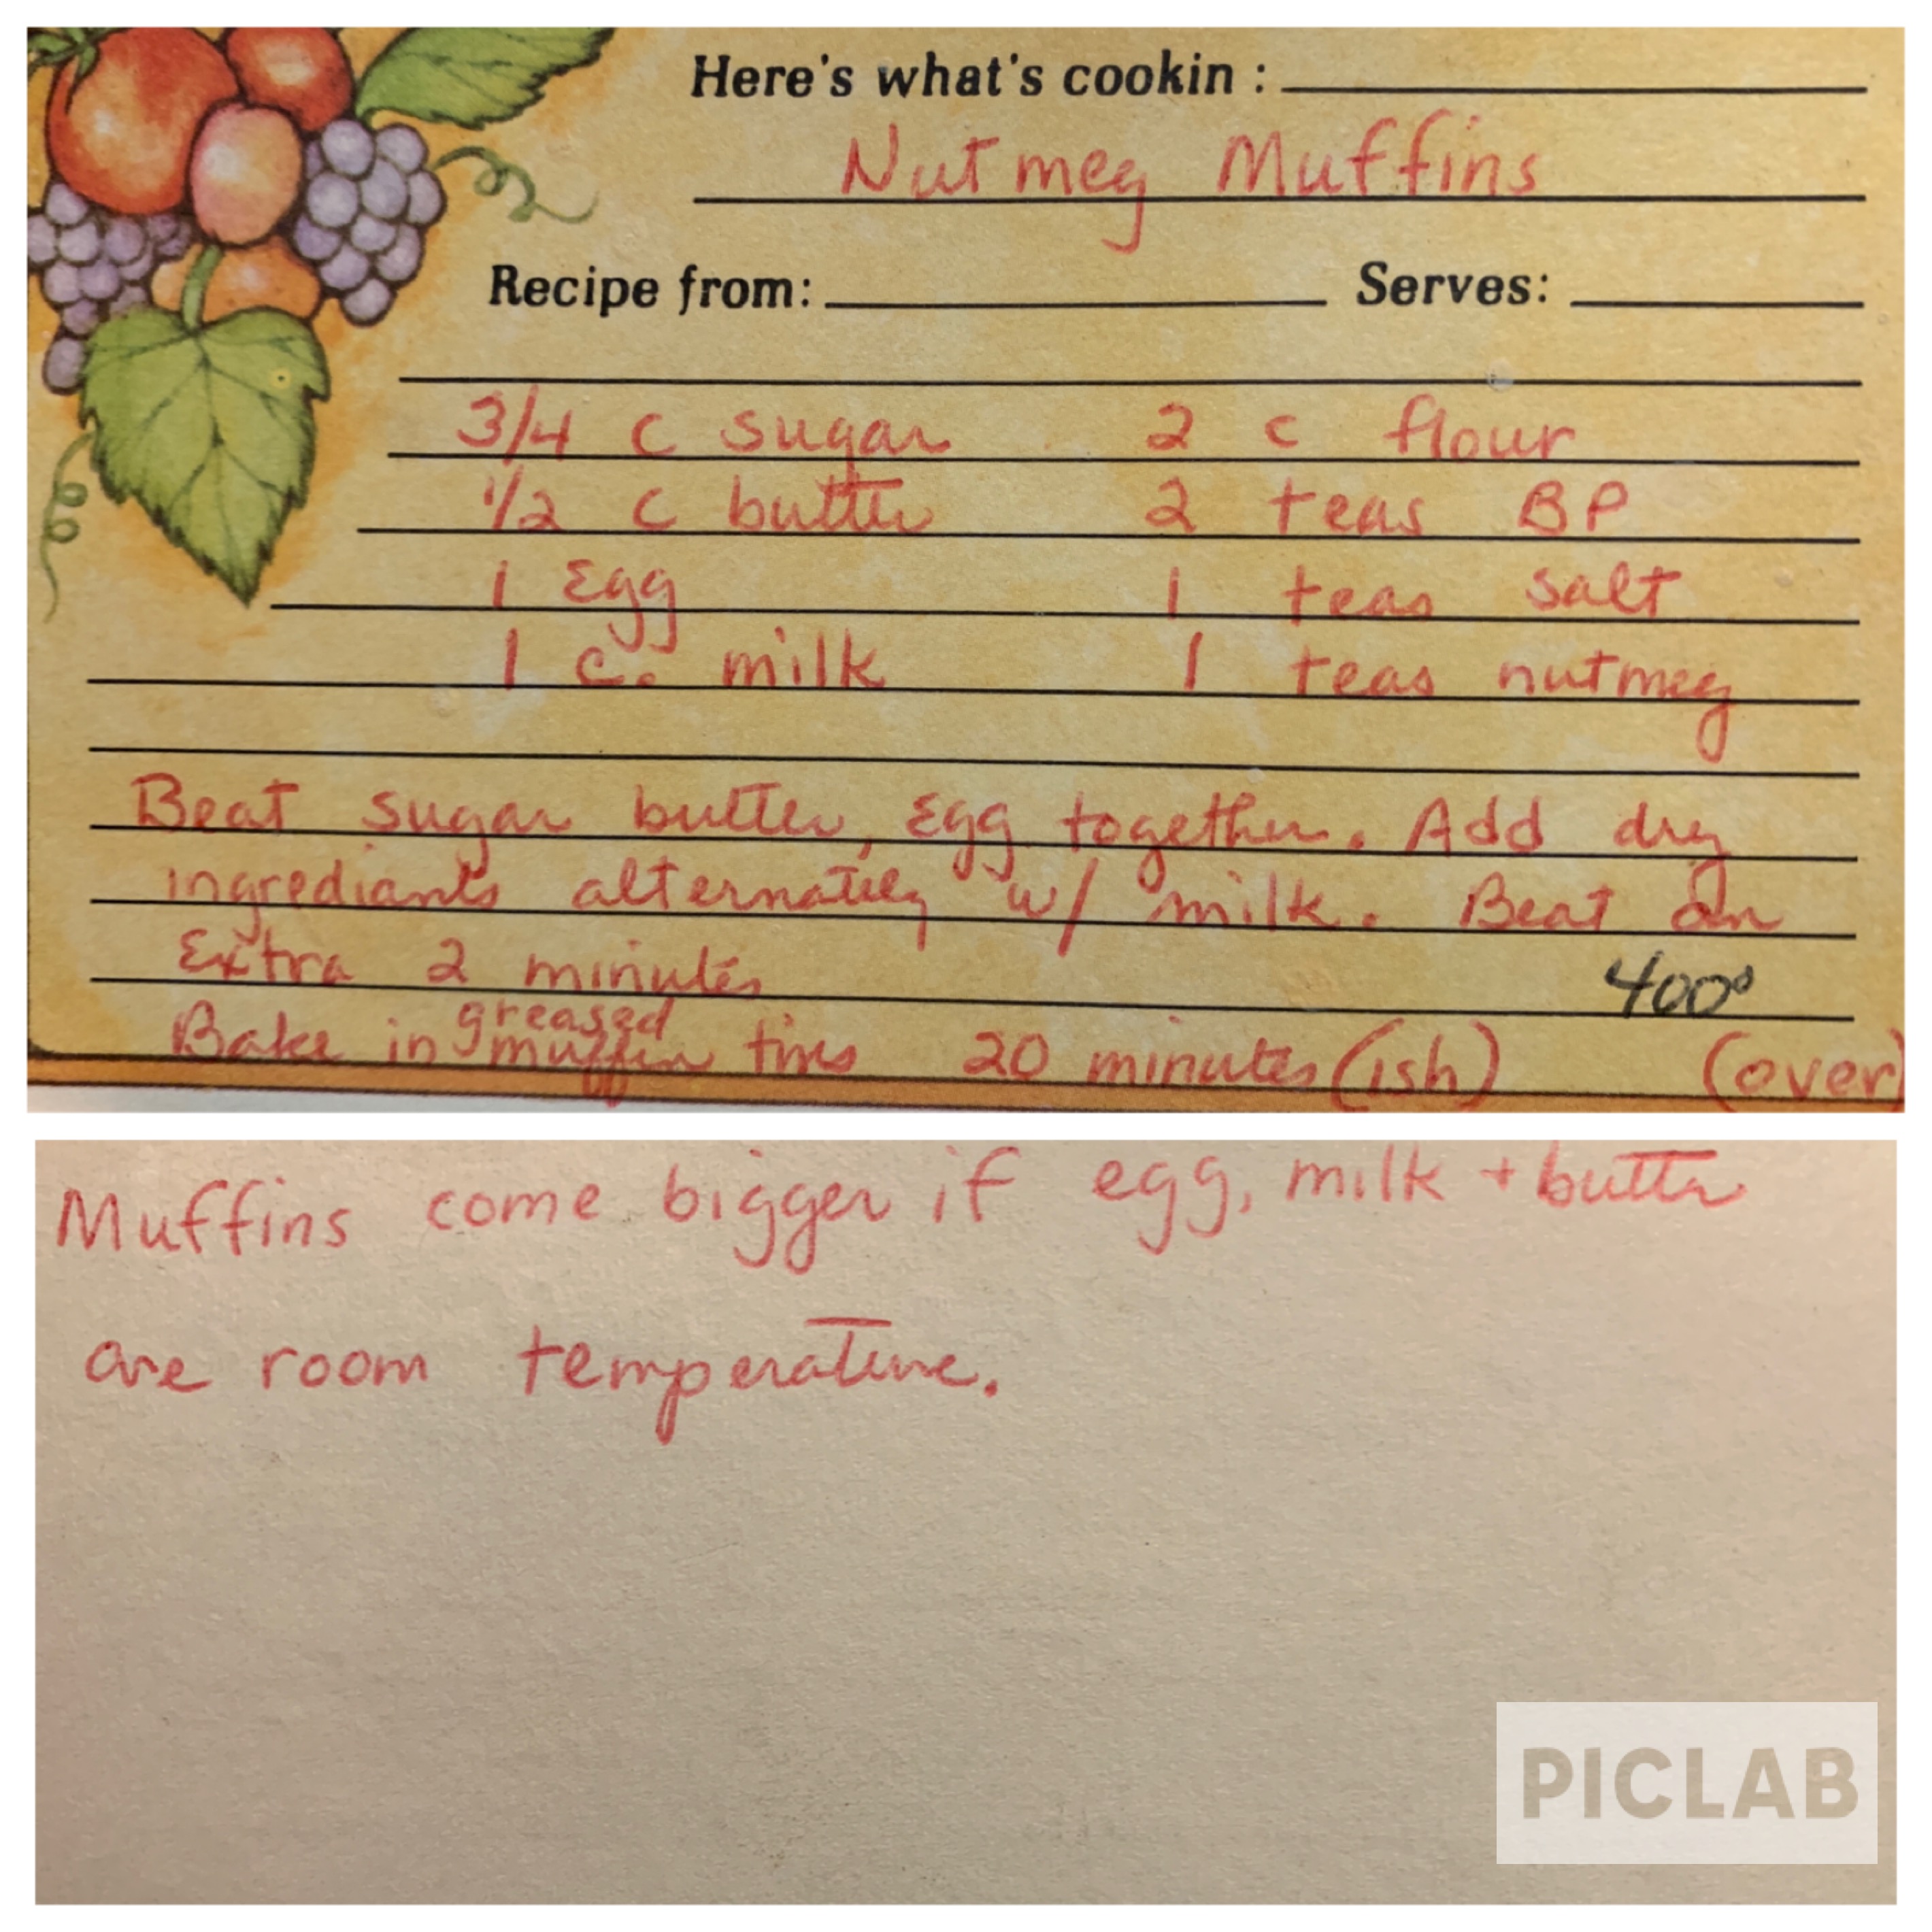 Here's what's cookin :
Nutmeg Muffins
Recipe from: Serves:
3/4 c sugar 2 c flour
1/2 c butter 2 teas BP
1 Egg 1 teas salt
1 c. milk 1 teas nutmeg
Beat sugar butter, Egg together. Add dry
ingrediants alternately w/ milk. Beat an
Extra 2 minutes
400°
greased
Bake in muffin tins 20 minutes (ish) (over)
Muffins come bigger if egg, milk + butter
are room temperature.
PICLAB